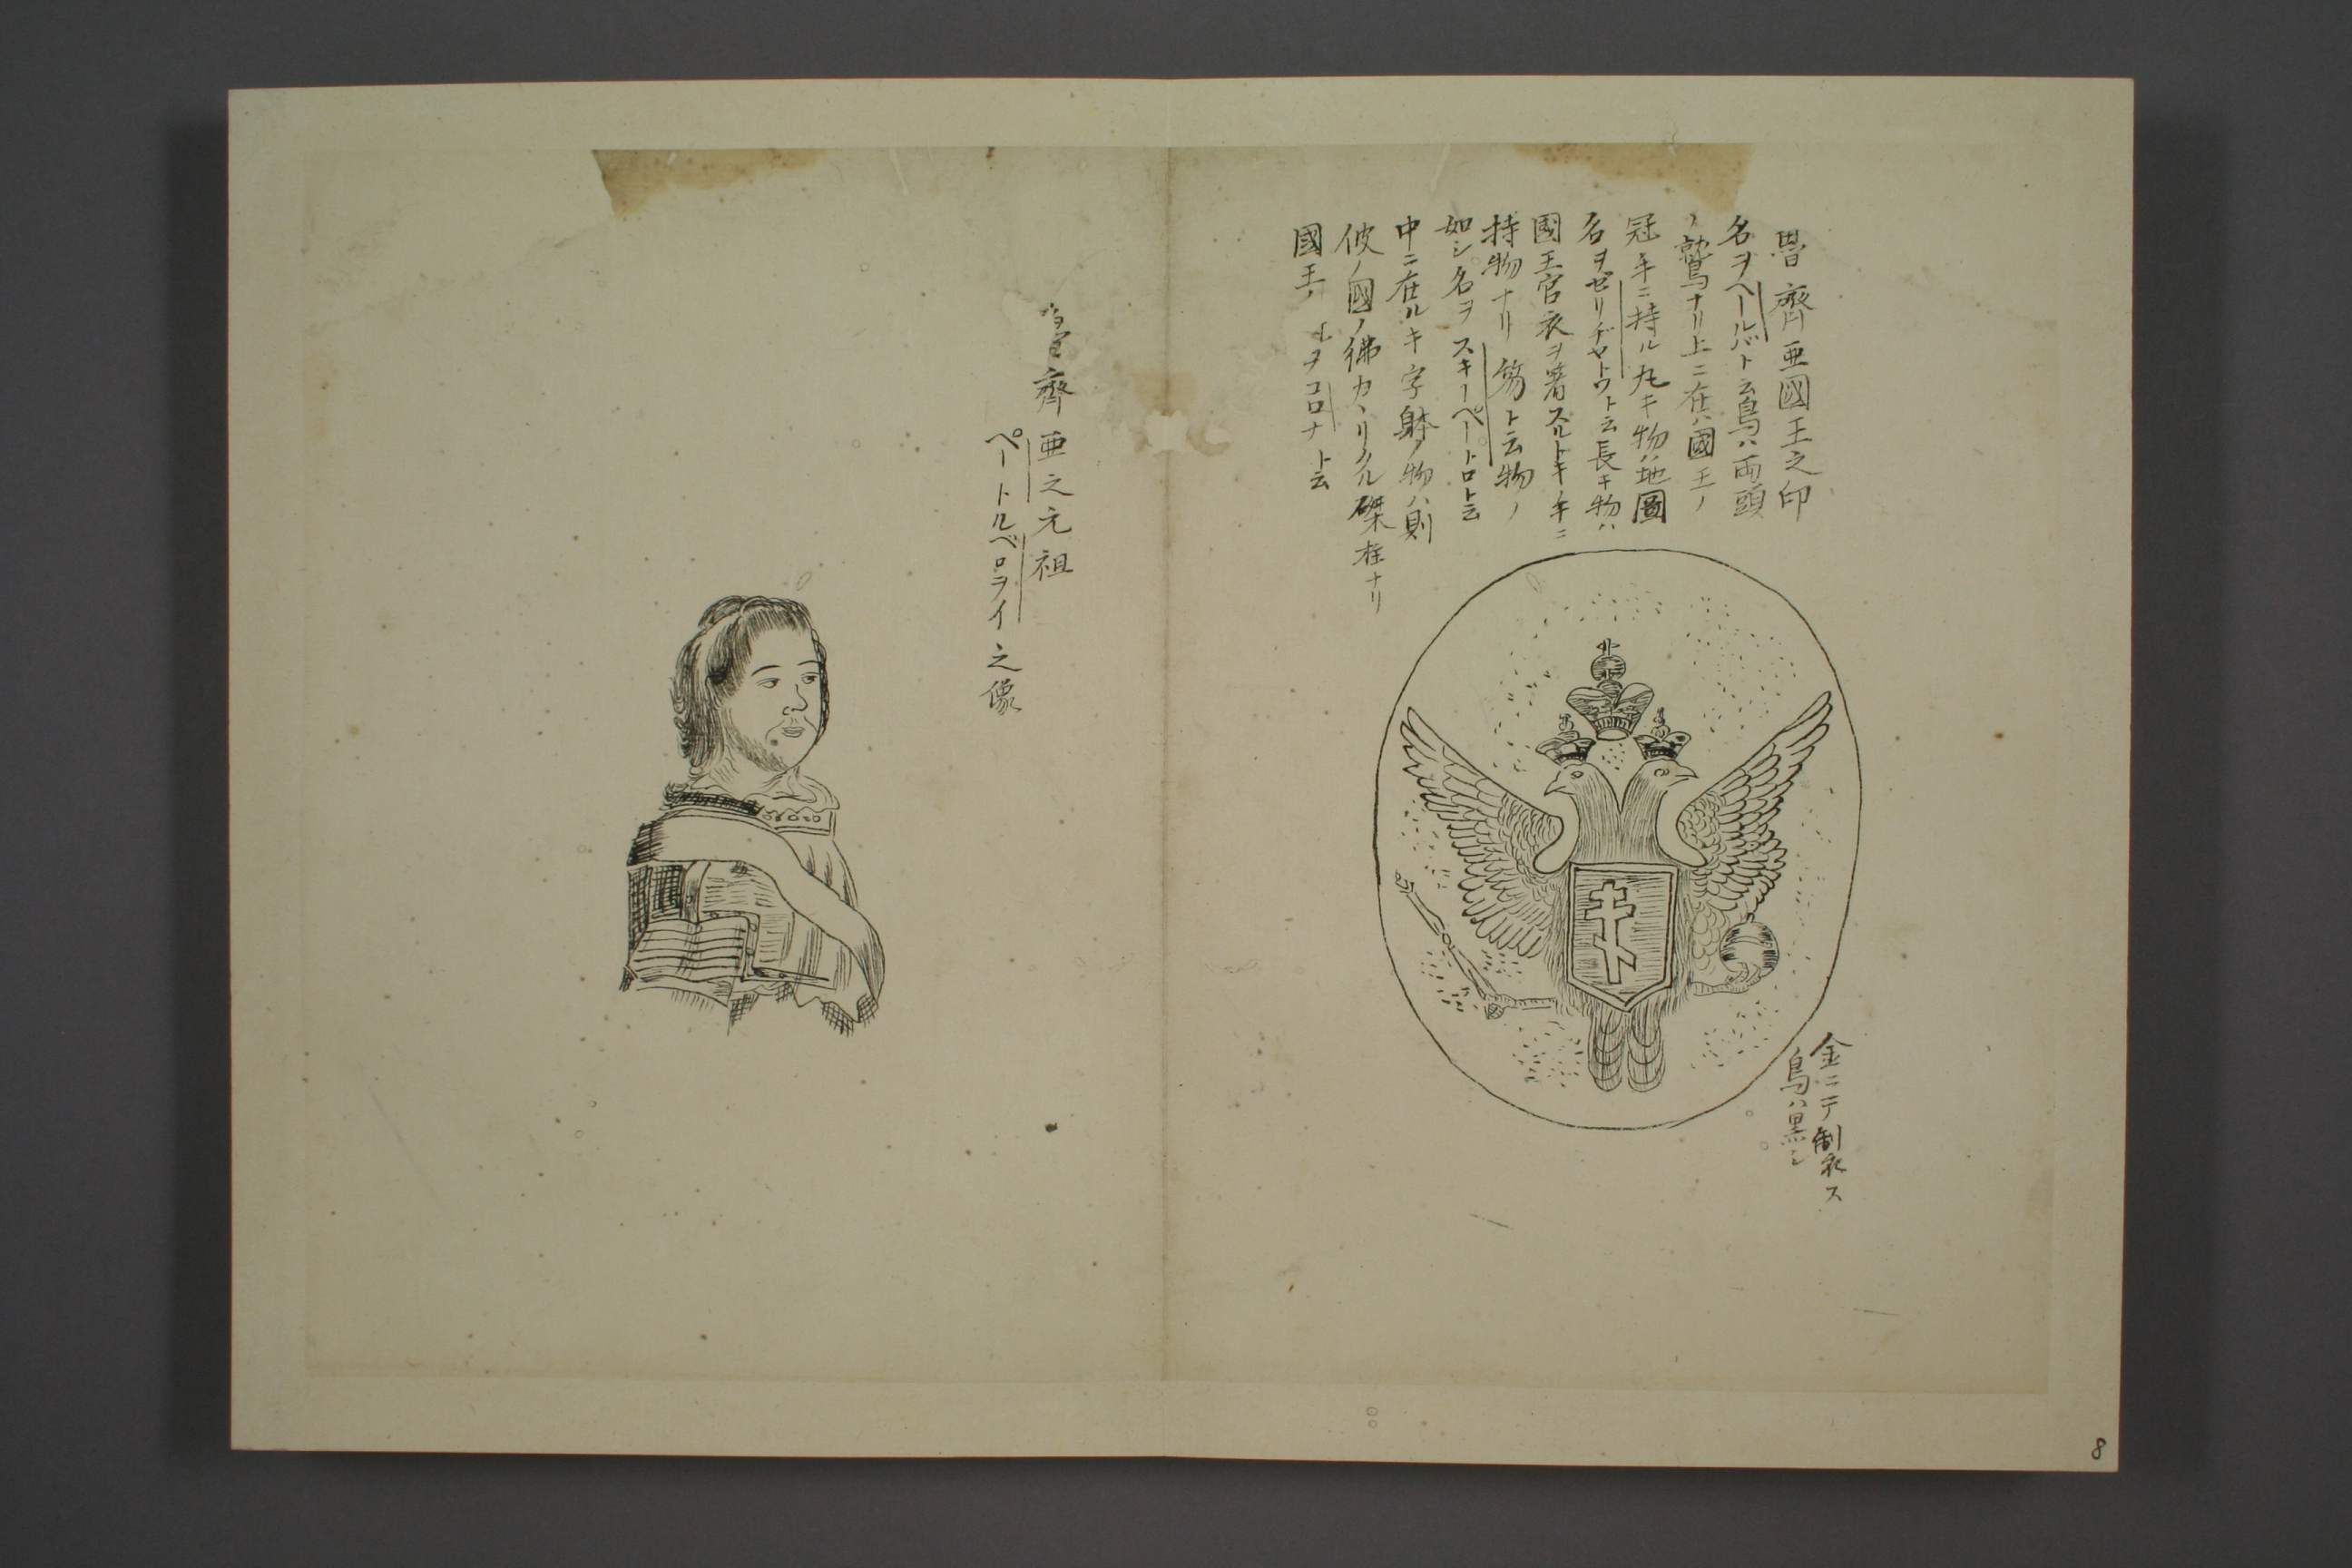 魯齊亜國王之印
名ヲヘールバト云鳥ハ両頭
ノ鷲ナリ上ニ在ハ國王ノ
冠手ニ持ル丸キ物ハ地圖
名ヲゼリヂヤトウト云長キ物ハ
國王官衣ヲ著スルトキ手ニ
持物ナリ笏ト云物ノ
如シ名ヲスキーペートロト云
中ニ在ルキ字躰ノ物ハ則
彼ノ國ノ佛カヽリタル磔柱ナリ
國王ノ ヲコロナト云
金ニテ製ス
鳥ハ黒シ
齊亜之元祖
ペートルベロヲイ之像
8